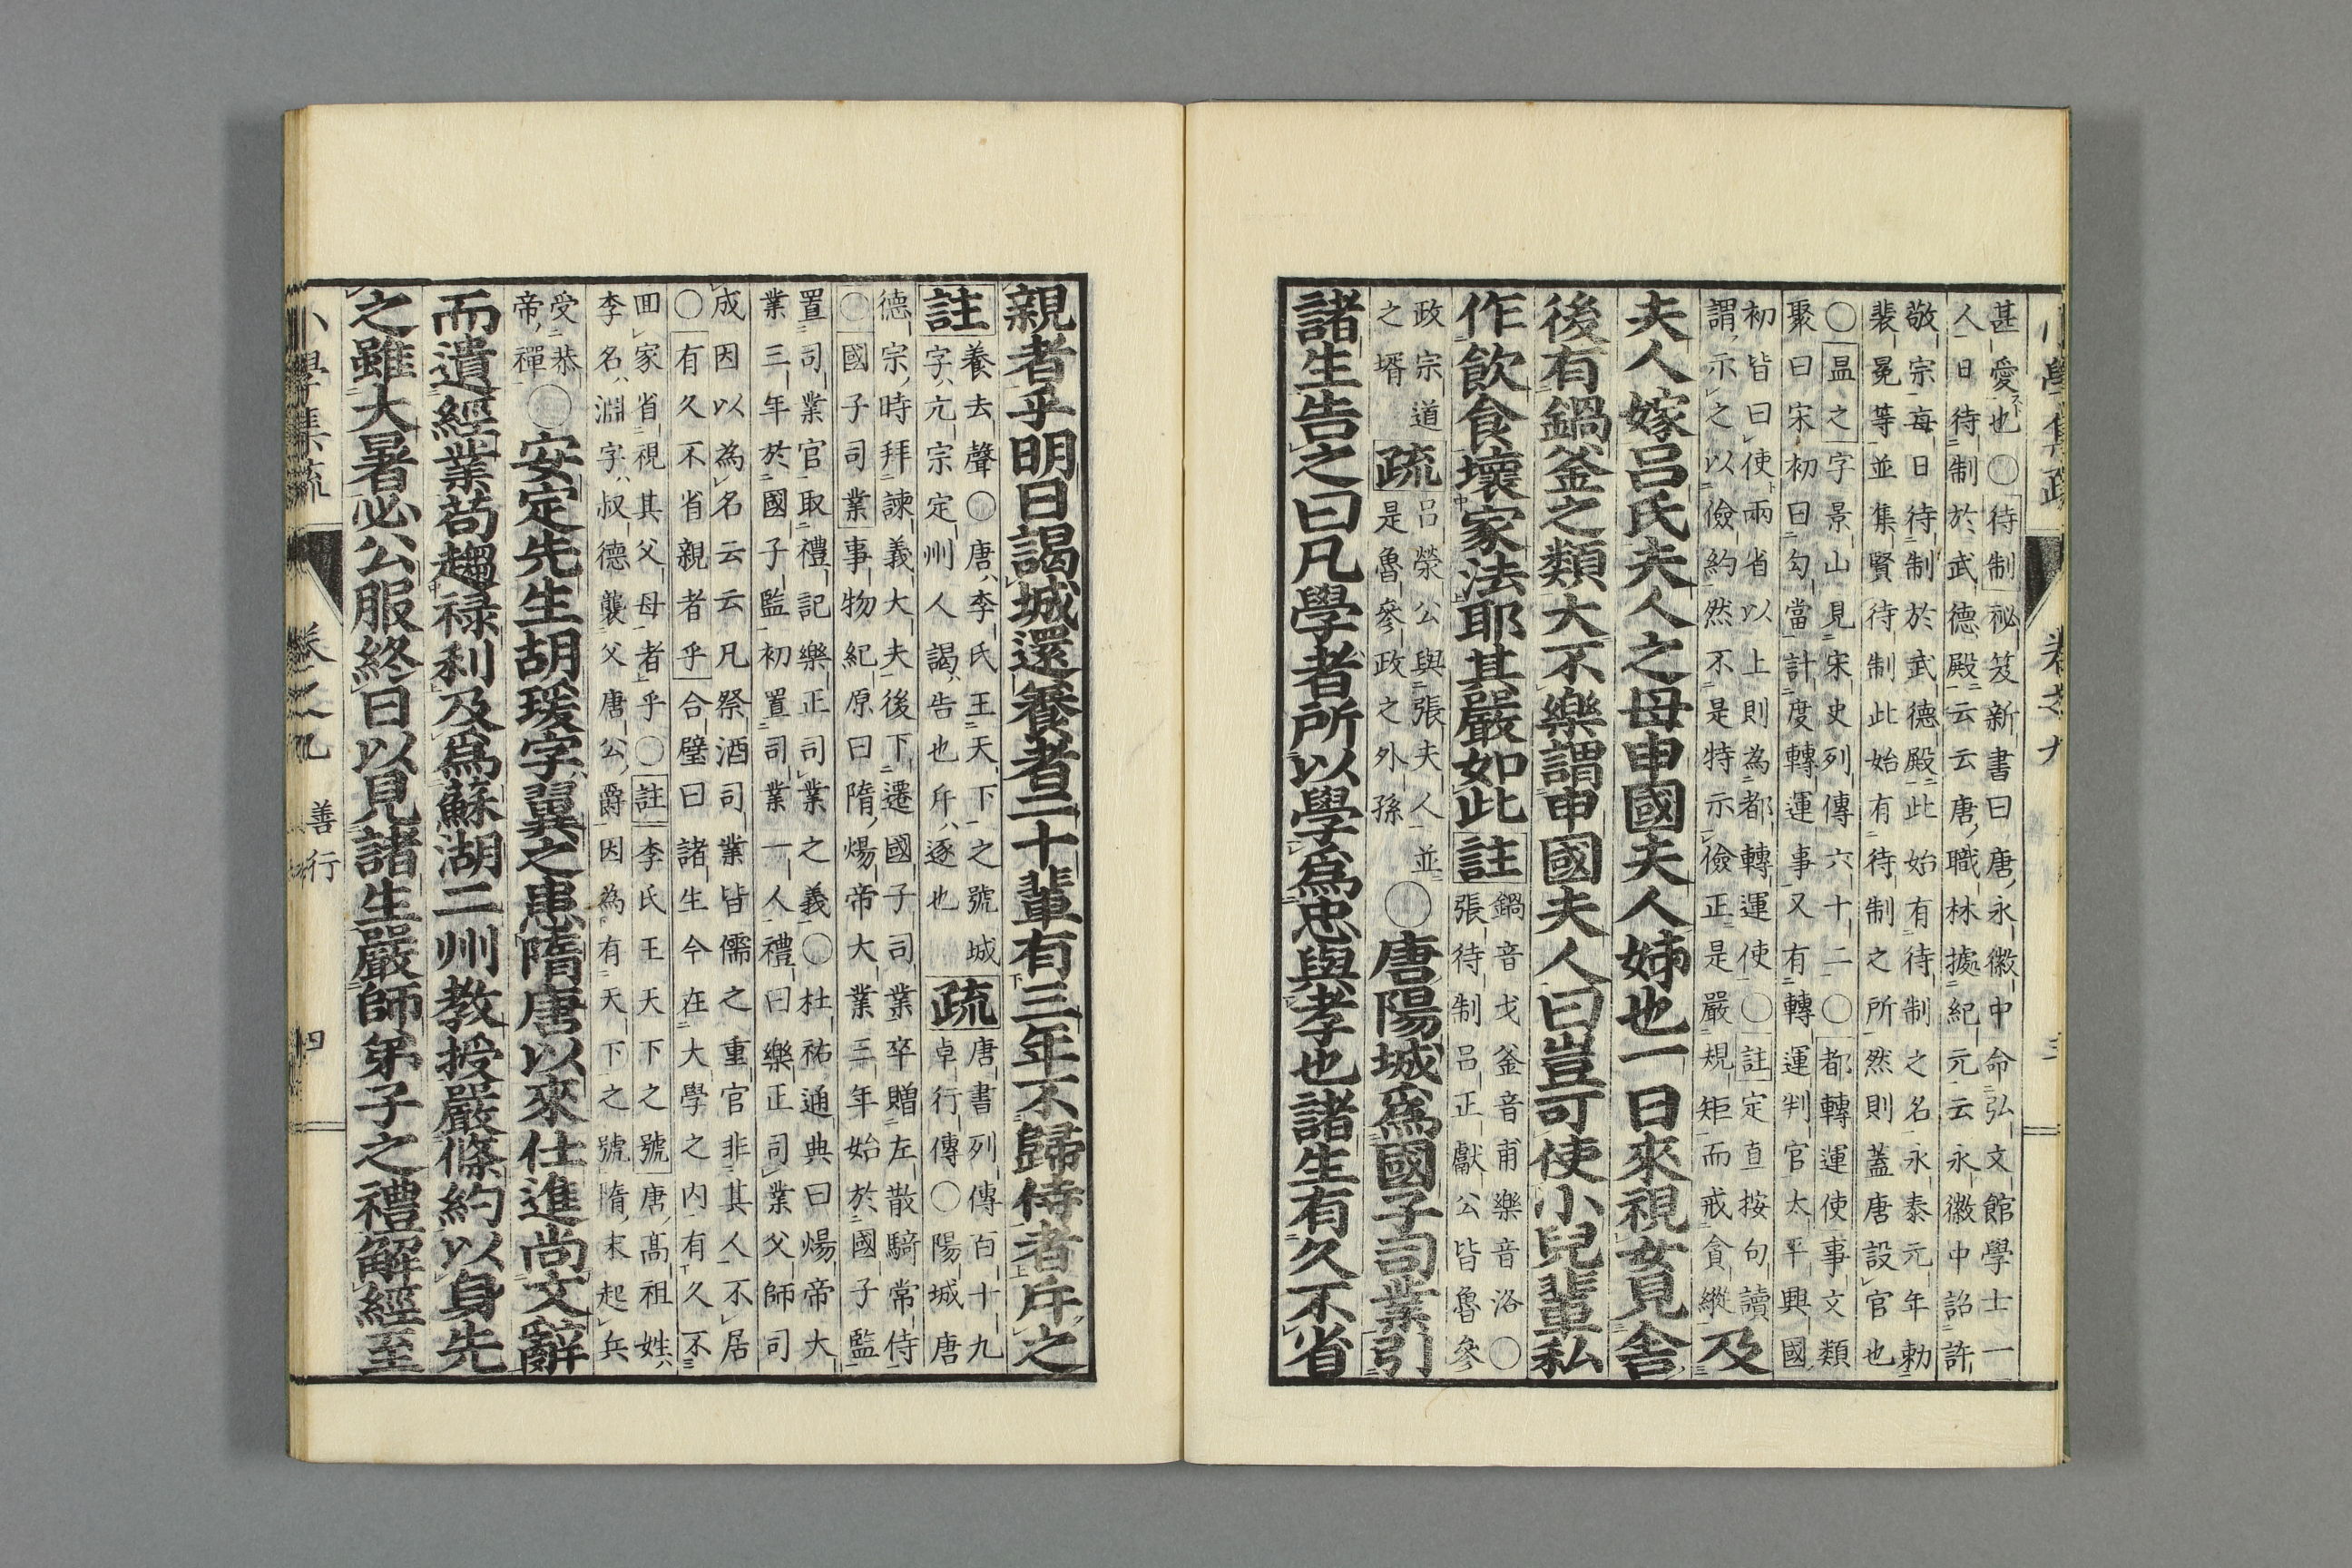 小學集疏
卷之九
甚愛也〇待制秘笈新書曰唐永徽中命弘文館學士一
人日待制於武德殿云云唐職林據紀元云永徽中詔許
敬宗每日待制於武德殿此始有待制之名永泰元年勅
裴冕等並集賢待制此始有待制之所然則蓋唐設官也
〇温之字景山見宋史列傳六十二〇都轉運使事文類
聚曰宋初曰勾當計度轉運事又有轉運判官太平興國
初皆曰使兩省以上則為都轉運使〇註定直按句讀
謂示之以儉約然不是特示儉正是嚴規矩而戒貪縱
及
夫人嫁呂氏夫人之母申國夫人姊也一日來視女見舍
後有鍋釜之類大不樂謂申國夫人曰豈可使小兒輩私
作飲食壞家法耶其嚴如此
註
鍋音戈釜音甫樂音洛〇
張待制呂正獻公皆魯參
政宗道
之壻
疏
呂滎公與張夫人並
是魯參政之外孫
〇唐陽城為國子司業引
諸生告之曰凡學者所以學為忠與孝也諸生有久不省
親者乎明日謁城還養者二十輩有三年不歸侍者斥之
註
養去聲〇唐李氏王天下之號城
字亢宗定州人謁告也斥逐也
疏
唐書列傳百十九
卓行傳〇陽城唐
德宗時拜諫義大夫後下遷國子司業卒贈左散騎常侍
〇國子司業事物紀原曰隋煬帝大業三年始於國子監
置司業官取禮記樂正司業之義〇杜祐通典曰煬帝大
業三年於國子監初置司業一人禮曰樂正司業父師司
成因以為名云云凡祭酒司業皆儒之重官非其人不居
〇有久不省親者乎合璧曰諸生今在大學之内有久不
囬家省視其父母者乎〇註李氏王天下之號唐高祖姓
李名淵字叔德襲父唐公爵因為有天下之號隋末起兵
受恭
帝禪
〇安定先生胡瑗字翼之患隋唐以來仕進尚文辭
而遺經業苟趨祿利及為蘇湖二州教授嚴條約以身先
之雖大暑必公服終日以見諸生嚴師弟子之禮解經至
小學集疏
卷之九
善行
四